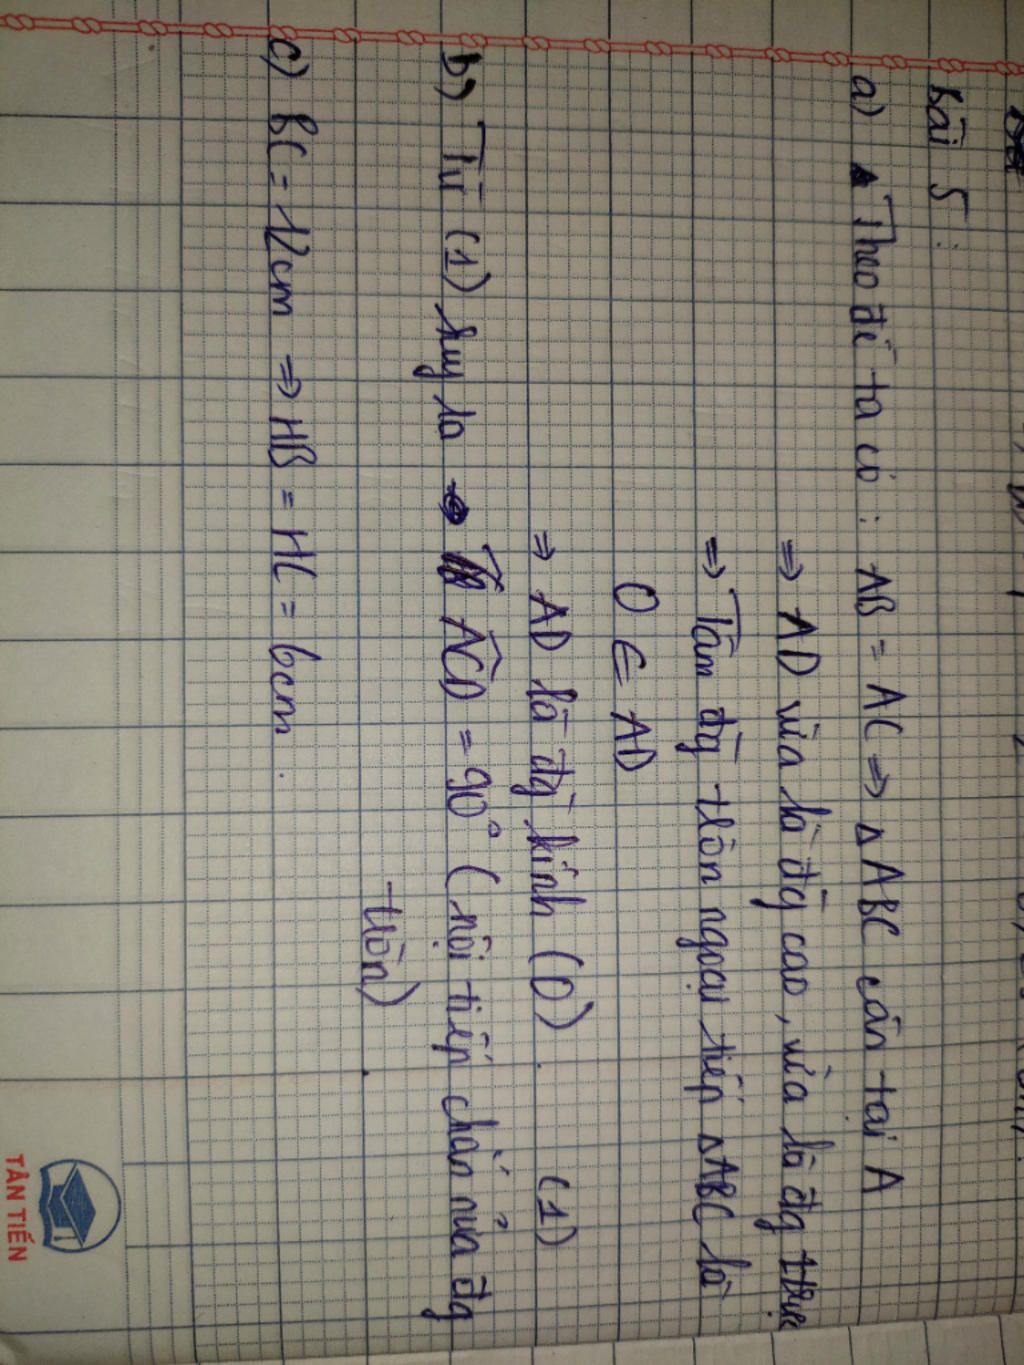 Bài 5:
a) Theo đề ta có: AB = AC => △ABC cân tại A
=> AD vừa là đg cao, vừa là đg trực
=> Tâm đg tròn ngoại tiếp △ABC là
O ∈ AD
=> AD là đg kính (O). (1)
b) Từ (1) suy ra ACD = 90° (nội tiếp chắn nửa đg
tròn).
c) BC = 12cm => HB = HC = 6cm.
TÂN TIẾN